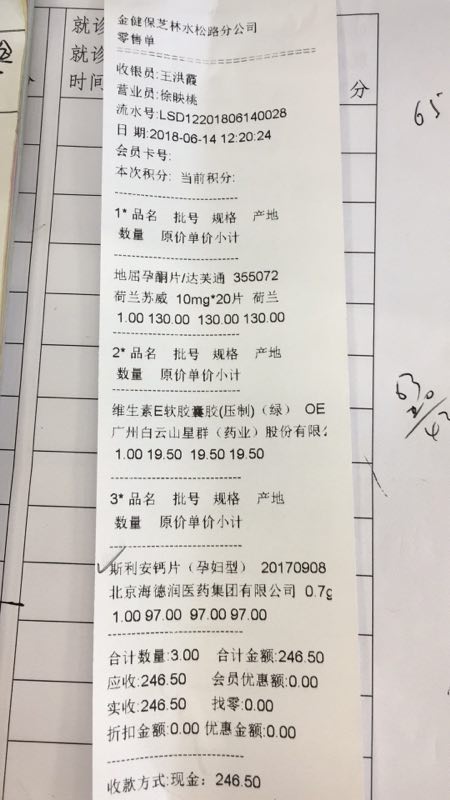 就诊
就诊
时间
分
65
金健保芝林水松路分公司
零售单
收银员:王洪霞
营业员:徐映桃
流水号:LSD12201806140028
日 期:2018-06-14 12:20:24
会员卡号:
本次积分: 当前积分:
1* 品名 批号 规格 产地
数量 原价单价小计
地屈孕酮片/达芙通 355072
荷兰苏威 10mg*20片 荷兰
1.00 130.00 130.00 130.00
2* 品名 批号 规格 产地
数量 原价单价小计
维生素E软胶囊胶(压制)(绿) OE
广州白云山星群（药业）股份有限
1.00 19.50 19.50 19.50
3* 品名 批号 规格 产地
数量 原价单价小计
斯利安钙片（孕妇型） 20170908
北京海德润医药集团有限公司 0.7g
1.00 97.00 97.00 97.00
合计数量:3.00 合计金额:246.50
应收:246.50 会员优惠额:0.00
实收:246.50 找零:0.00
折扣金额:0.00 优惠金额:0.00
收款方式:现金: 246.50